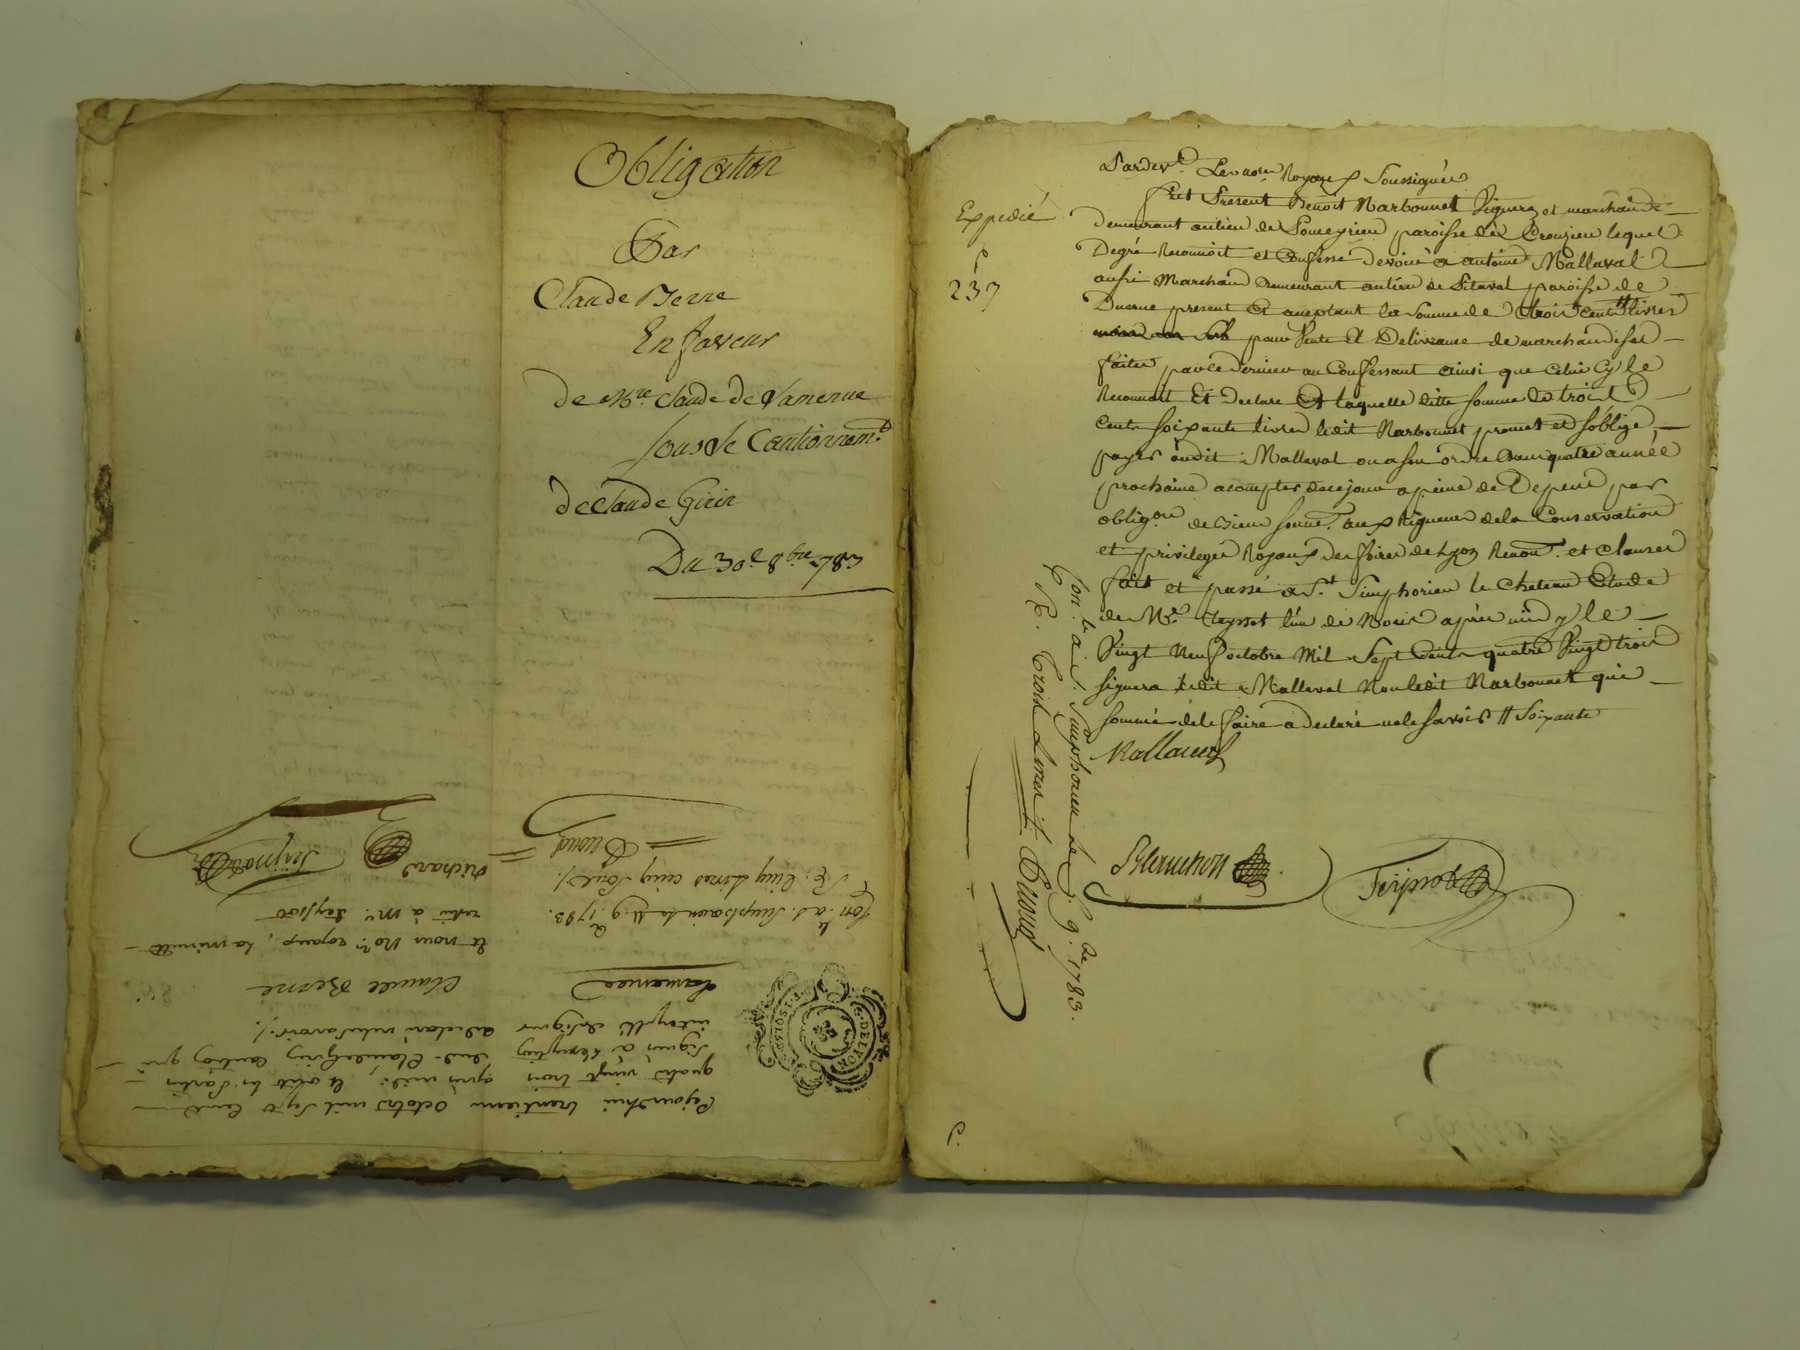 Obligation
Par
Claude Berne
En faveur
de Mre Claude de Vamenue
Sous Le Cautionnemt
de Claude Girin
Du 30e 8bre 1783
Cejourd'hui trentieme Octobre mil Sept Cent
quatre vingt trois après midi, et ont les Parties
Signé à l'exception dud. Claude Girin Caution qui
interpellé de signer a declaré ne le savoir ./.
Claude Berne
et nous Nores royaux, la minute
restée à Me Teyssot
Con. le à St. Simphorien le 11 9 1783.
R. Cinq Livres cinq Sous ./.
Richard
Expedié
237
Pardevt. Les nores Royaux Soussignés
fut Present Benoit Narbonnet Vigneron et marchand
demeurant au lieu de Pomeyrieu paroisse de Crouzieu lequel
Degré Reconnoit et Confesse devoir a antoine Mallaval
aussi Marchand Demeurant au lieu de Pitaval paroisse de
Duerne present Et acceptant la Somme de trois Cents livres
pour Vente Et Delivrance de marchandises
faites par ce dernier au Confessant ainsi que Celui Cy le
Reconnoit Et Declare Et laquelle ditte Somme de trois
Cents Soixante livres ledit Narbonnet promet et s'oblige
payer audit Mallaval ou a son ordre dans quatre année
prochaine acompter de ce jour apeine de Depens par
obligon de Biens Soumt. aux Rigueurs de la Conservation
et privileges Royaux des foires de Lyon Renont. et Clauses
fait et passé a St. Simphorien le Chateau Etude
de Me. Teyssot l'un de Nous après midy le
Vingt Neuf octobre Mil Sept Cents quatre Vingt trois
Signera ledit Mallaval Non ledit Narbonnet qui
Sommé de le faire a Declaré ne le Savoir // Soixante
Mallaval
Con. le a St. Simphorien le 9bre 1783.
R. Trois Livres